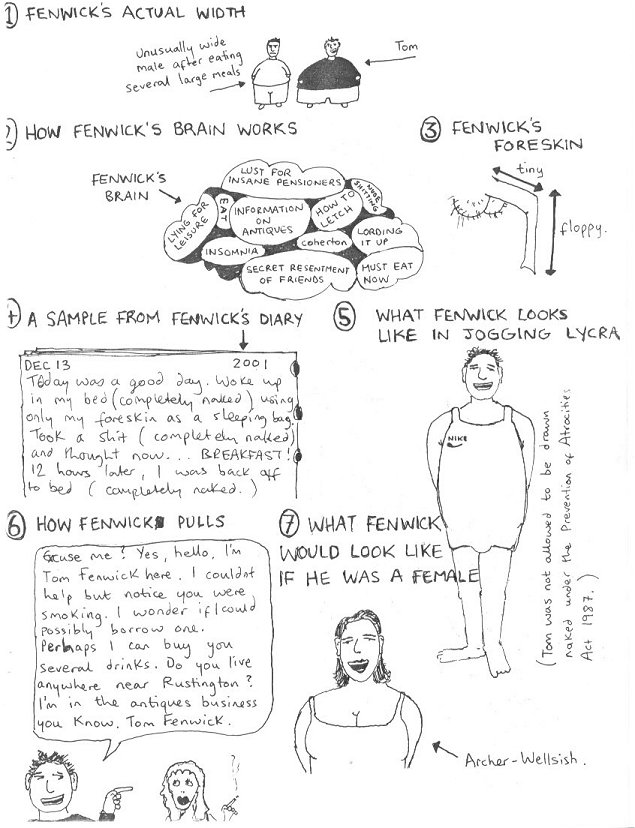 1) FENWICK'S ACTUAL WIDTH
Unusually wide
male after eating
several large meals
Tom
2) HOW FENWICK'S BRAIN WORKS
FENWICK'S
BRAIN
LUST FOR
INSANE PENSIONERS
NUDE
SHITTING
LYING FOR
LEISURE
EAT
INFORMATION
ON
ANTIQUES
HOW TO
LETCH
LORDING
IT UP
INSOMNIA
coherton
SECRET RESENTMENT
OF FRIENDS
MUST EAT
NOW
3 FENWICK'S
FORESKIN
tiny
floppy.
A SAMPLE FROM FENWICK'S DIARY
DEC 13 2001
Today was a good day. Woke up
in my bed (completely naked) using
only my foreskin as a sleeping bag.
Took a shit (completely naked)
and thought now... BREAKFAST!
12 hours later, I was back off
to bed (completely naked.)
5 WHAT FENWICK LOOKS
LIKE IN JOGGING LYCRA
NIKE
(Tom was not allowed to be drawn
naked under the Prevention of Atrocities
Act 1987.)
6 HOW FENWICK PULLS
Excuse me? Yes, hello, I'm
Tom Fenwick here. I couldnt
help but notice you were
smoking. I wonder if I could
possibly borrow one.
Perhaps I can buy you
several drinks. Do you live
anywhere near Rustington?
I'm in the antiques business
you know. Tom Fenwick.
7 WHAT FENWICK
WOULD LOOK LIKE
IF HE WAS A FEMALE
Archer-Wellsish.